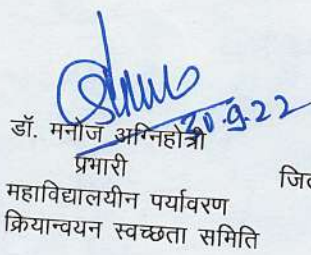 20.9.22
डॉ. मनोज अग्निहोत्री
प्रभारी
महाविद्यालयीन पर्यावरण
क्रियान्वयन स्वच्छता समिति